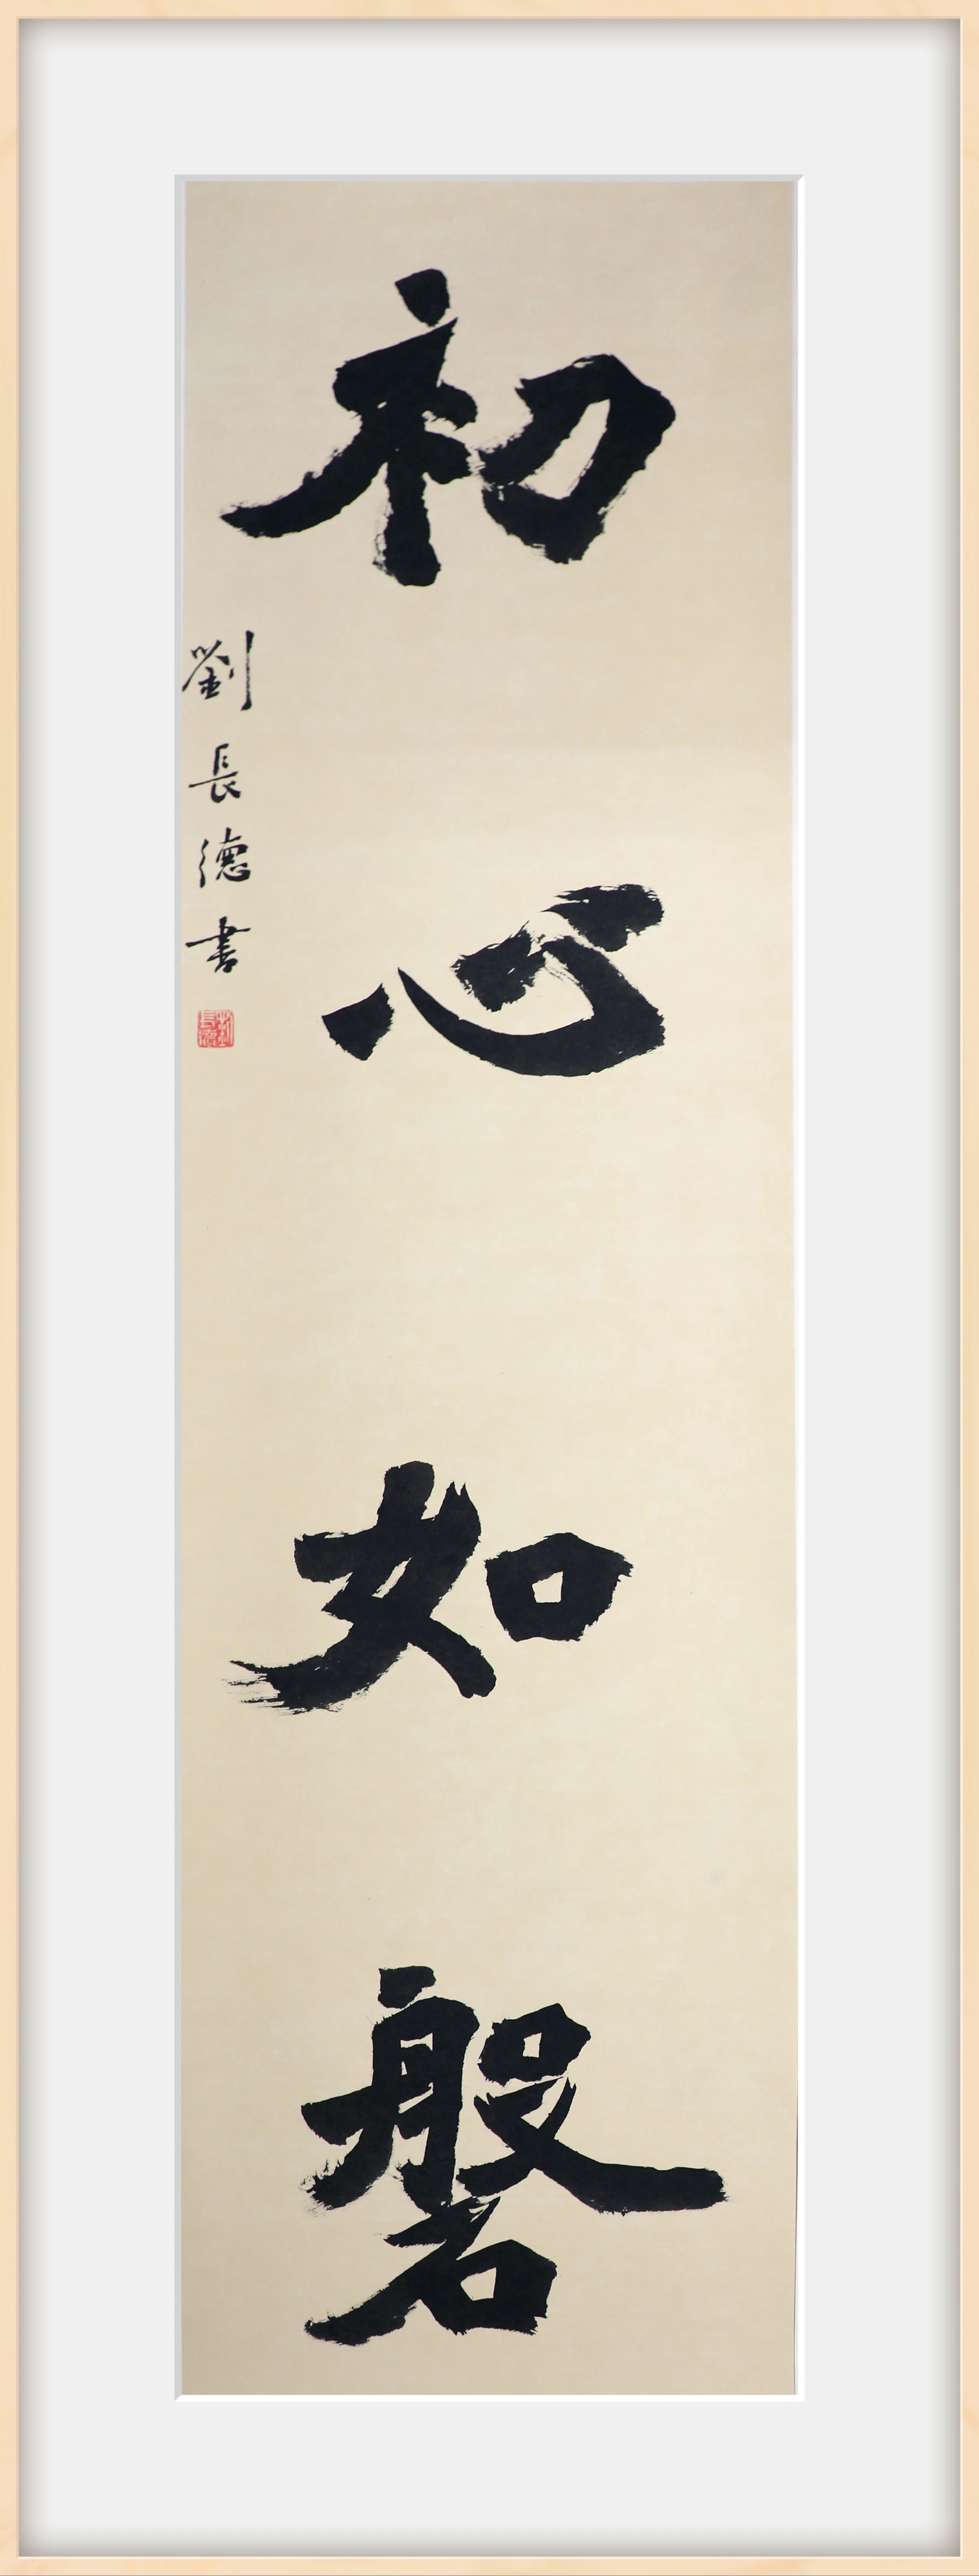 初心如磐
劉長德書